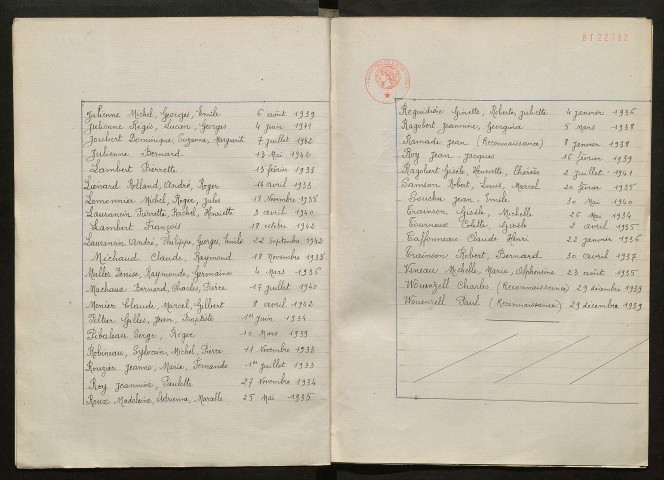 Julienne Michel, Georges, Emile 6 août 1939
Julienne Régis, Lucien, Georges 4 juin 1941
Joubert Dominique, Suzanne, Marguerit 7 juillet 1942
Julienne Bernard 13 Mai 1942
Lambert Pierrette 13 février 1933
Liénard Rolland, André, Roger 16 avril 1933
Lemonnier Michel, Roger, Jules 18 Novembre 1935
Laurancin Pierrette, Rachel, Henriette 3 avril 1940
Lambert François 18 octobre 1942
Laurancin André, Philippe, Georges, Emile 22 Septembre 1942
Michaud Claude, Raymond 18 Novembre 1938
Muller Denise, Raymonde, Germaine 4 Mars 1936
Machaux Bernard, Charles, Pierre 17 juillet 1940
Menier Claude, Marcel, Gilbert 8 avril 1942
Peltier Gilles, Jean, Baptiste 1er juin 1934
Pobaleau Serge, Roger 10 Mars 1939
Robineau, Sylvain, Michel, Pierre 11 Novembre 1933
Rouzier Jeanne, Marie, Fernande 1er juillet 1933
Roy Jeannine, Paulette 27 Novembre 1934
Roux Madeleine, Adrienne, Marcelle 25 Mai 1935
81 22:82
Reguidière Ginette, Roberte, Juliette 4 janvier 1936
Ragobert Jeannine, Georgina 5 Mars 1938
Ramade Jean (Reconnaissance) 8 janvier 1938
Roy Jean Jacques 16 février 1939
Ragobert Gisèle, Henriette, Thérèse 2 juillet 1941
Samson Robert, Louis, Marcel 20 février 1935
Souchu Jean, Emile 30 Mai 1940
Trainson Gisèle, Michelle 26 Mai 1934
Tourneux Colette, Gisèle 2 avril 1935
Taffonneau Claude Henri 22 janvier 1936
Trainson Robert, Bernard 30 avril 1937
Vineau Michelle, Marie, Alphonsine 23 août 1935
Wouenzell Charles (Reconnaissance) 29 décembre 1939
Wouenzell Paul (Reconnaissance) 29 décembre 1939